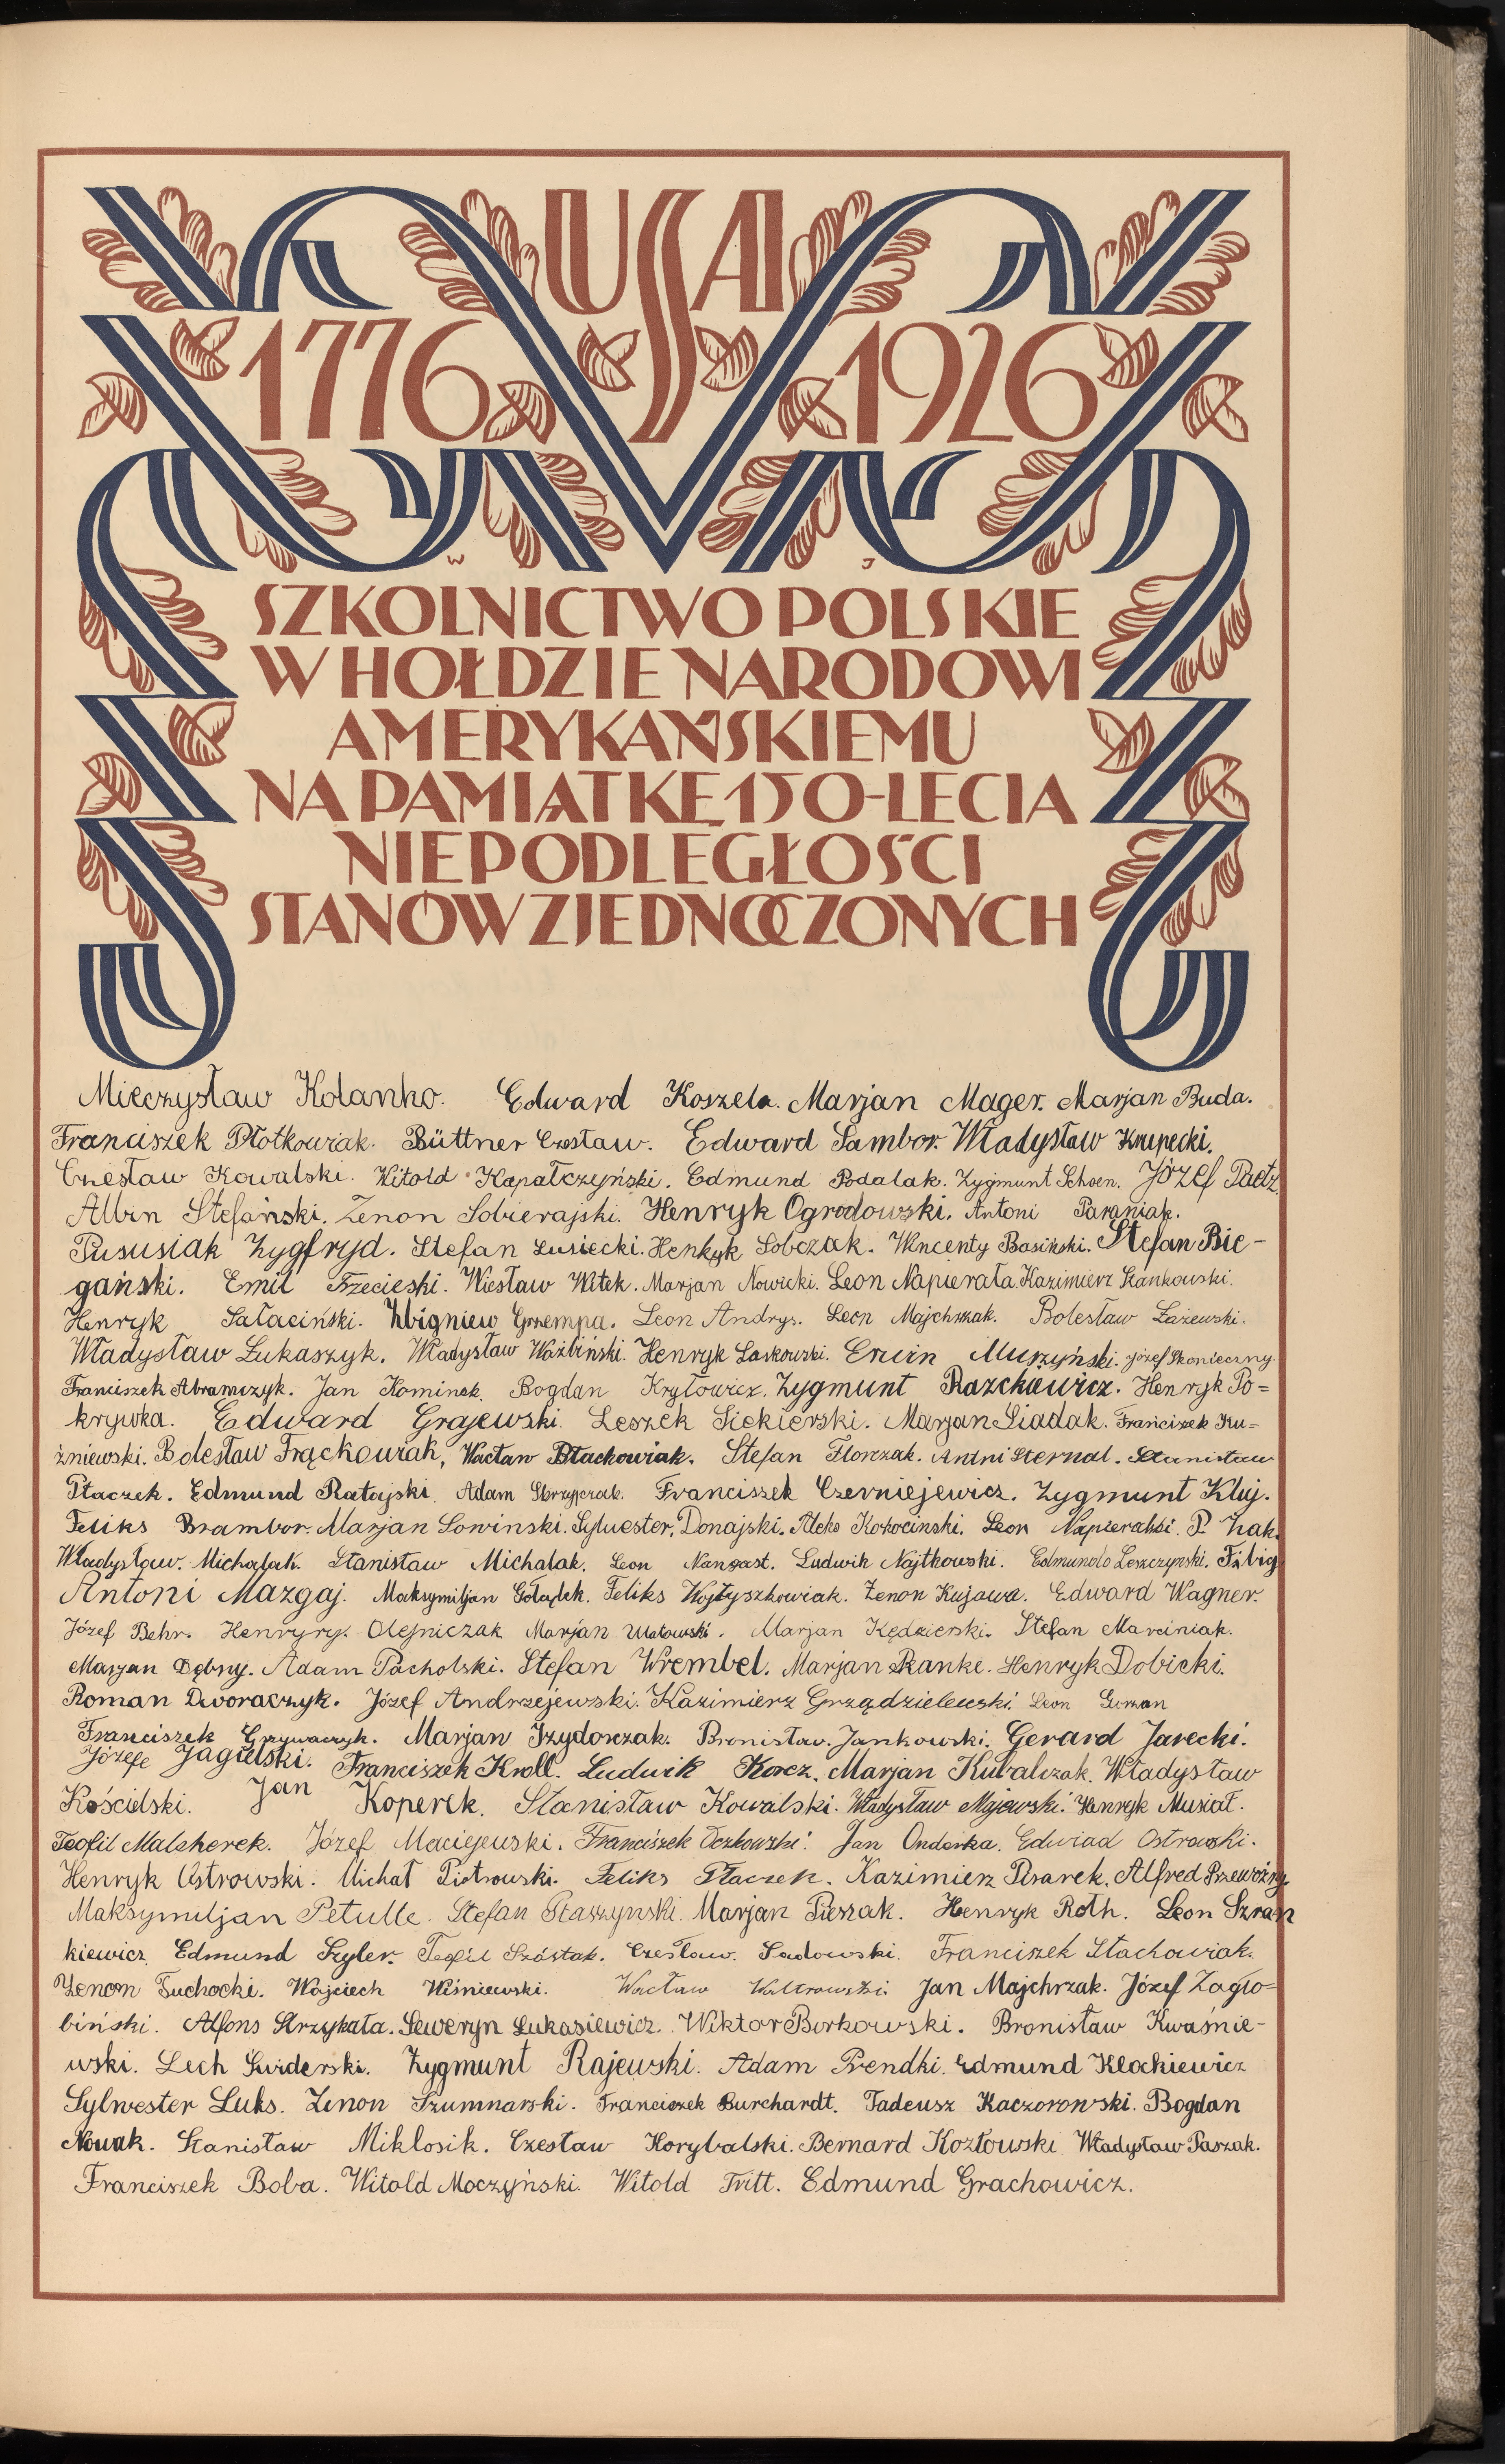 USA
1776 1926
W J
SZKOLNICTWO POLSKIE
W HOŁDZIE NARODOWI
AMERYKAŃSKIEMU
NA PAMIĄTKĘ 150-LECIA
NIEPODLEGŁOŚCI
STANÓW ZJEDNOCZONYCH
Mieczysław Kolanko. Edward Koszela. Marjan Mager. Marjan Buda.
Franciszek Płotkowiak. Büttner Czesław. Edward Sambor. Władysław Krupecki.
Czesław Kowalski. Witold Kapałczyński. Edmund Podalak. Zygmunt Schoen. Józef Paetz
Albin Stefański. Zenon Sobierajski. Henryk Ogrodowski. Antoni Paraniak.
Pususiak Zygfryd. Stefan Łusiecki. Henryk Sobczak. Wincenty Basiński. Stefan Bie-
gański. Emil Trzecieski. Wiesław Witek. Marjan Nowicki. Leon Napierała. Kazimierz Stankowski.
Henryk Sałaciński. Zbigniew Grzempa. Leon Andrys. Leon Majchrzak. Bolesław Łażewski.
Władysław Łukaszyk. Władysław Waźbiński. Henryk Laskowski. Erwin Murzyński. Józef Skonieczny.
Franciszek Abramczyk. Jan Kominek. Bogdan Kryłowicz. Zygmunt Raszkiewicz. Henryk Po=
krywka. Edward Grajewski. Leszek Siekierski. Marjan Siadak. Franciszek Ku=
źniewski. Bolesław Frąckowiak, Wacław Błachowiak. Stefan Florczak. Antni Sternal. Stanisław
Ptaczek. Edmund Ratajski. Adam Skrzypczak. Franciszek Czerniejewicz. Zygmunt Kluj.
Feliks Brambor. Marjan Sowinski. Sylwester Donajski. Aleks Kokocinski. Leon Napieralski. P. Żak.
Władysław Michalak. Stanisław Michalak. Leon Nangast. Ludwik Najtkowski. Edmund Leszczynski. Fibig
Antoni Mazgaj. Maksymiljan Gołądek. Feliks Wojtyszkowiak. Zenon Kujawa. Edward Wagner.
Józef Behr. Henryry. Olejniczak Marjan Matowski. Marjan Kędzierski. Stefan Marciniak.
Marjan Dębny. Adam Pacholski. Stefan Wrembel. Marjan Ranke. Henryk Dobicki.
Roman Dworaczyk. Józef Andrzejewski. Kazimierz Grządzielewski. Leon Gurzan
Franciszek Grzywaczyk. Marjan Izydorczak. Bronisław Jankowski. Gerard Jarecki.
Józefe Jagielski. Franciszek Kroll. Ludwik Korcz. Marjan Kubalczak. Władysław
Kościelski. Jan Koperek. Stanisław Kowalski. Władysław Majewski. Henryk Musiał.
Teofil Malcherek. Józef Maciejewski. Franciszek Oczkowski. Jan Onderka. Edwiad Ostrowski.
Henryk Ostrowski. Michał Piotrowski. Feliks Ptaczek. Kazimierz Pisarek. Alfred Przewoźny.
Maksymiljan Petulle. Stefan Staszynski. Marjan Pieszak. Henryk Roth. Leon Szran
kiewicz. Edmund Szyler. Teofil Szóstak. Czesław Sadowski. Franciszek Stachowiak.
Zenon Suchocki. Wojciech Wiśniewski. Wacław Walkowski. Jan Majchrzak. Józef Zagło=
biński. Alfons Strzykała. Seweryn Łukasiewicz. Wiktor Borkowski. Bronisław Kwaśnie-
wski. Lech Świderski. Zygmunt Rajewski. Adam Prendki. Edmund Klockiewicz
Sylwester Luks. Zenon Szumnarski. Franciszek Burchardt. Tadeusz Kaczorowski. Bogdan
Nowak. Stanisław Miklosik. Czesław Korybalski. Bernard Kozłowski. Władysław Paszak.
Franciszek Boba. Witold Moczyński. Witold Tritt. Edmund Grachowicz.